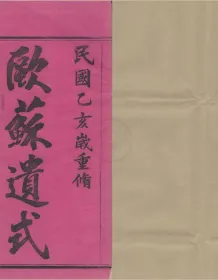 民國乙亥歲重脩
歐蘇遺式